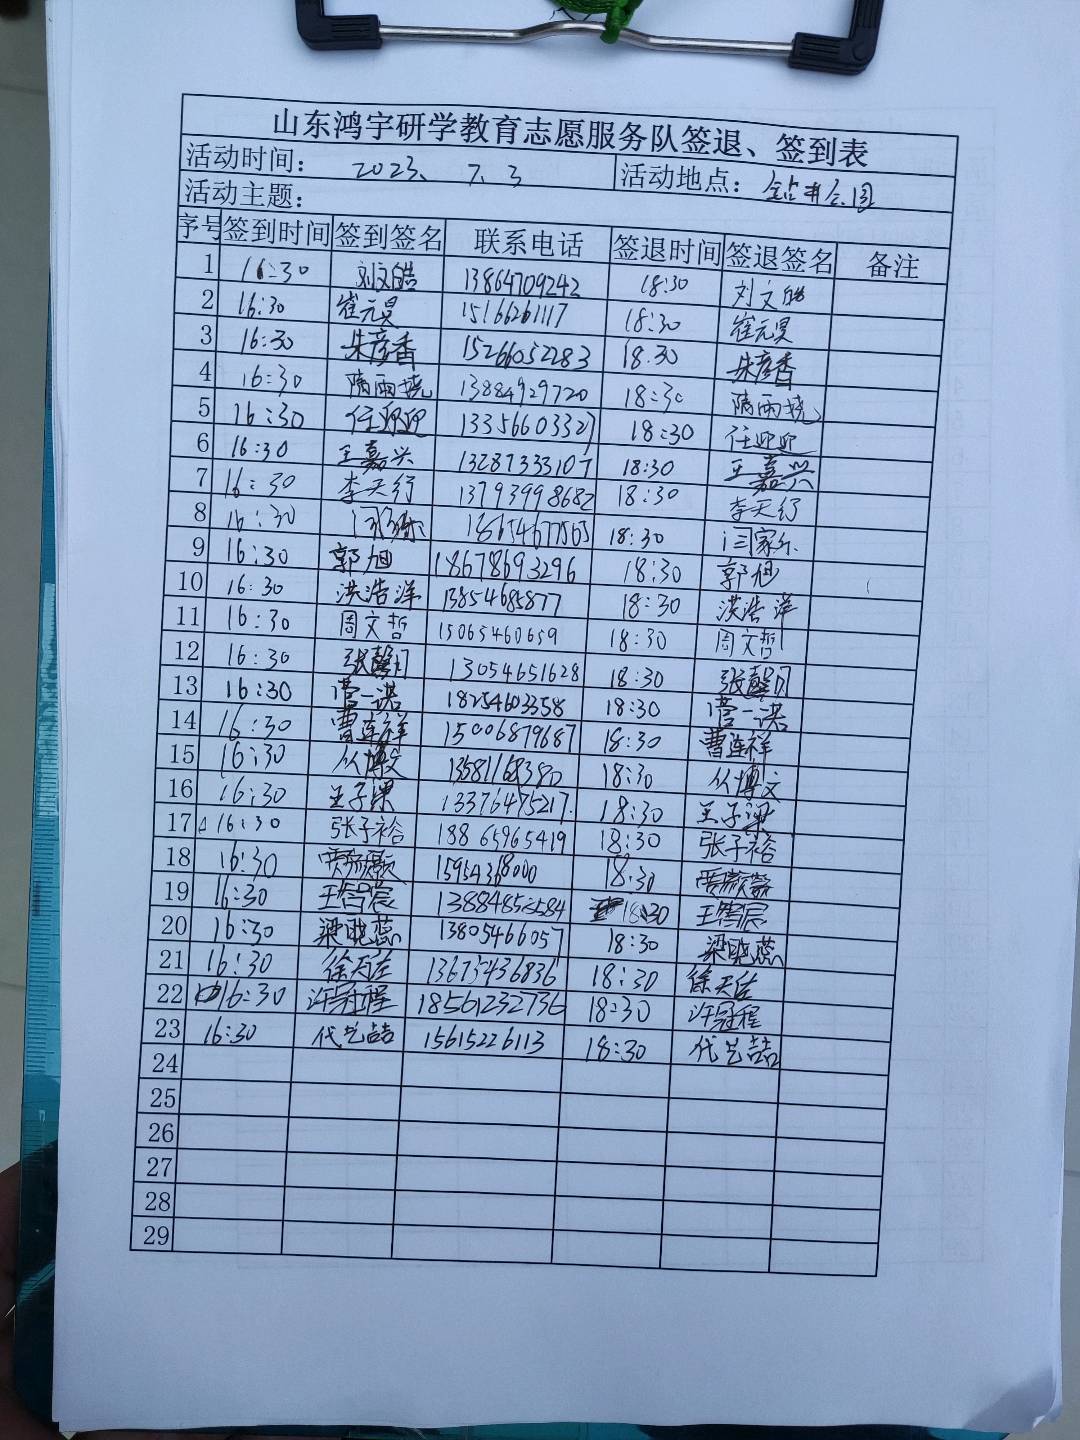 山东鸿宇研学教育志愿服务队签退、签到表
活动时间： 2023、7、3 活动地点：钻井公园
活动主题：
序号 签到时间 签到签名 联系电话 签退时间 签退签名 备注
1 16:30 刘文皓 13864709242 18:30 刘文皓
2 16:30 崔元昊 15166261117 18:30 崔元昊
3 16:30 朱彦香 15266052283 18:30 朱彦香
4 16:30 隋雨晓 13884929720 18:30 隋雨晓
5 16:30 任迎迎 13356603327 18:30 任迎迎
6 16:30 王嘉兴 13287333107 18:30 王嘉兴
7 16:30 李天行 13793998682 18:30 李天行
8 16:30 18:30 闫家乐
9 16:30 郭旭 18678693296 18:30 郭旭
10 16:30 洪浩洋 13854685877 18:30 洪浩洋
11 16:30 周文哲 15065460659 18:30 周文哲
12 16:30 张馨月 13054651628 18:30 张馨月
13 16:30 一诺 18254603358 18:30 一诺
14 16:30 曹连祥 15006879687 18:30 曹连祥
15 16:30 从博文 13581168380 18:30 从博文
16 16:30 王子梁 13376475217 18:30 王子梁
17 16:30 张子裕 18865965419 18:30 张子裕
18 16:30 贾 15954368000 18:30 贾
19 16:30 王智宸 18:30 王智宸
20 16:30 梁晓蕊 13805466057 18:30 梁晓蕊
21 16:30 徐天佐 13673436836 18:30 徐天佐
22 16:30 许冠程 18561232736 18:30 许冠程
23 16:30 代艺喆 15615226113 18:30 代艺喆
24
25
26
27
28
29